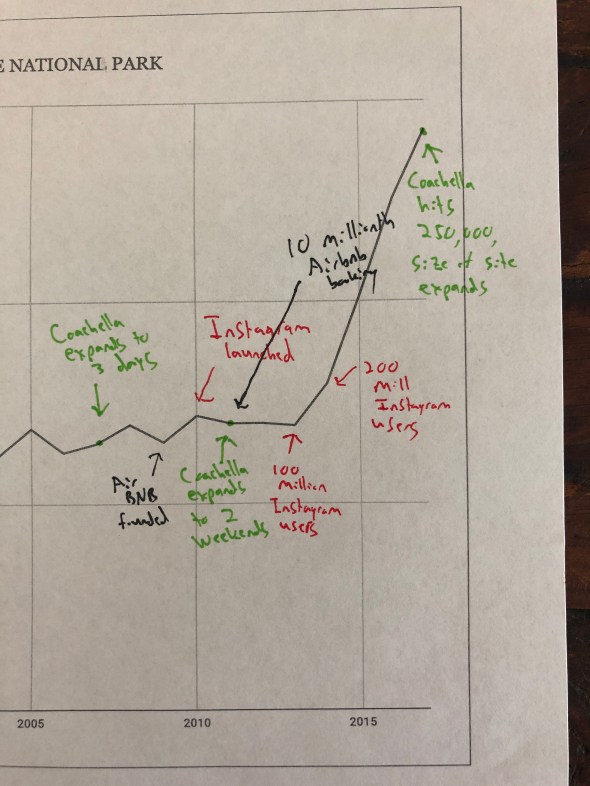 E NATIONAL PARK
Coachella
hits
250,000,
size of site
expands
10 millionth
Airbnb
booking
Instagram
launched
Coachella
expands to
3 days
200
mill
Instagram
users
Air
BNB
funded
Coachella
expands
to 2
weekends
100
million
Instagram
users
2005
2010
2015